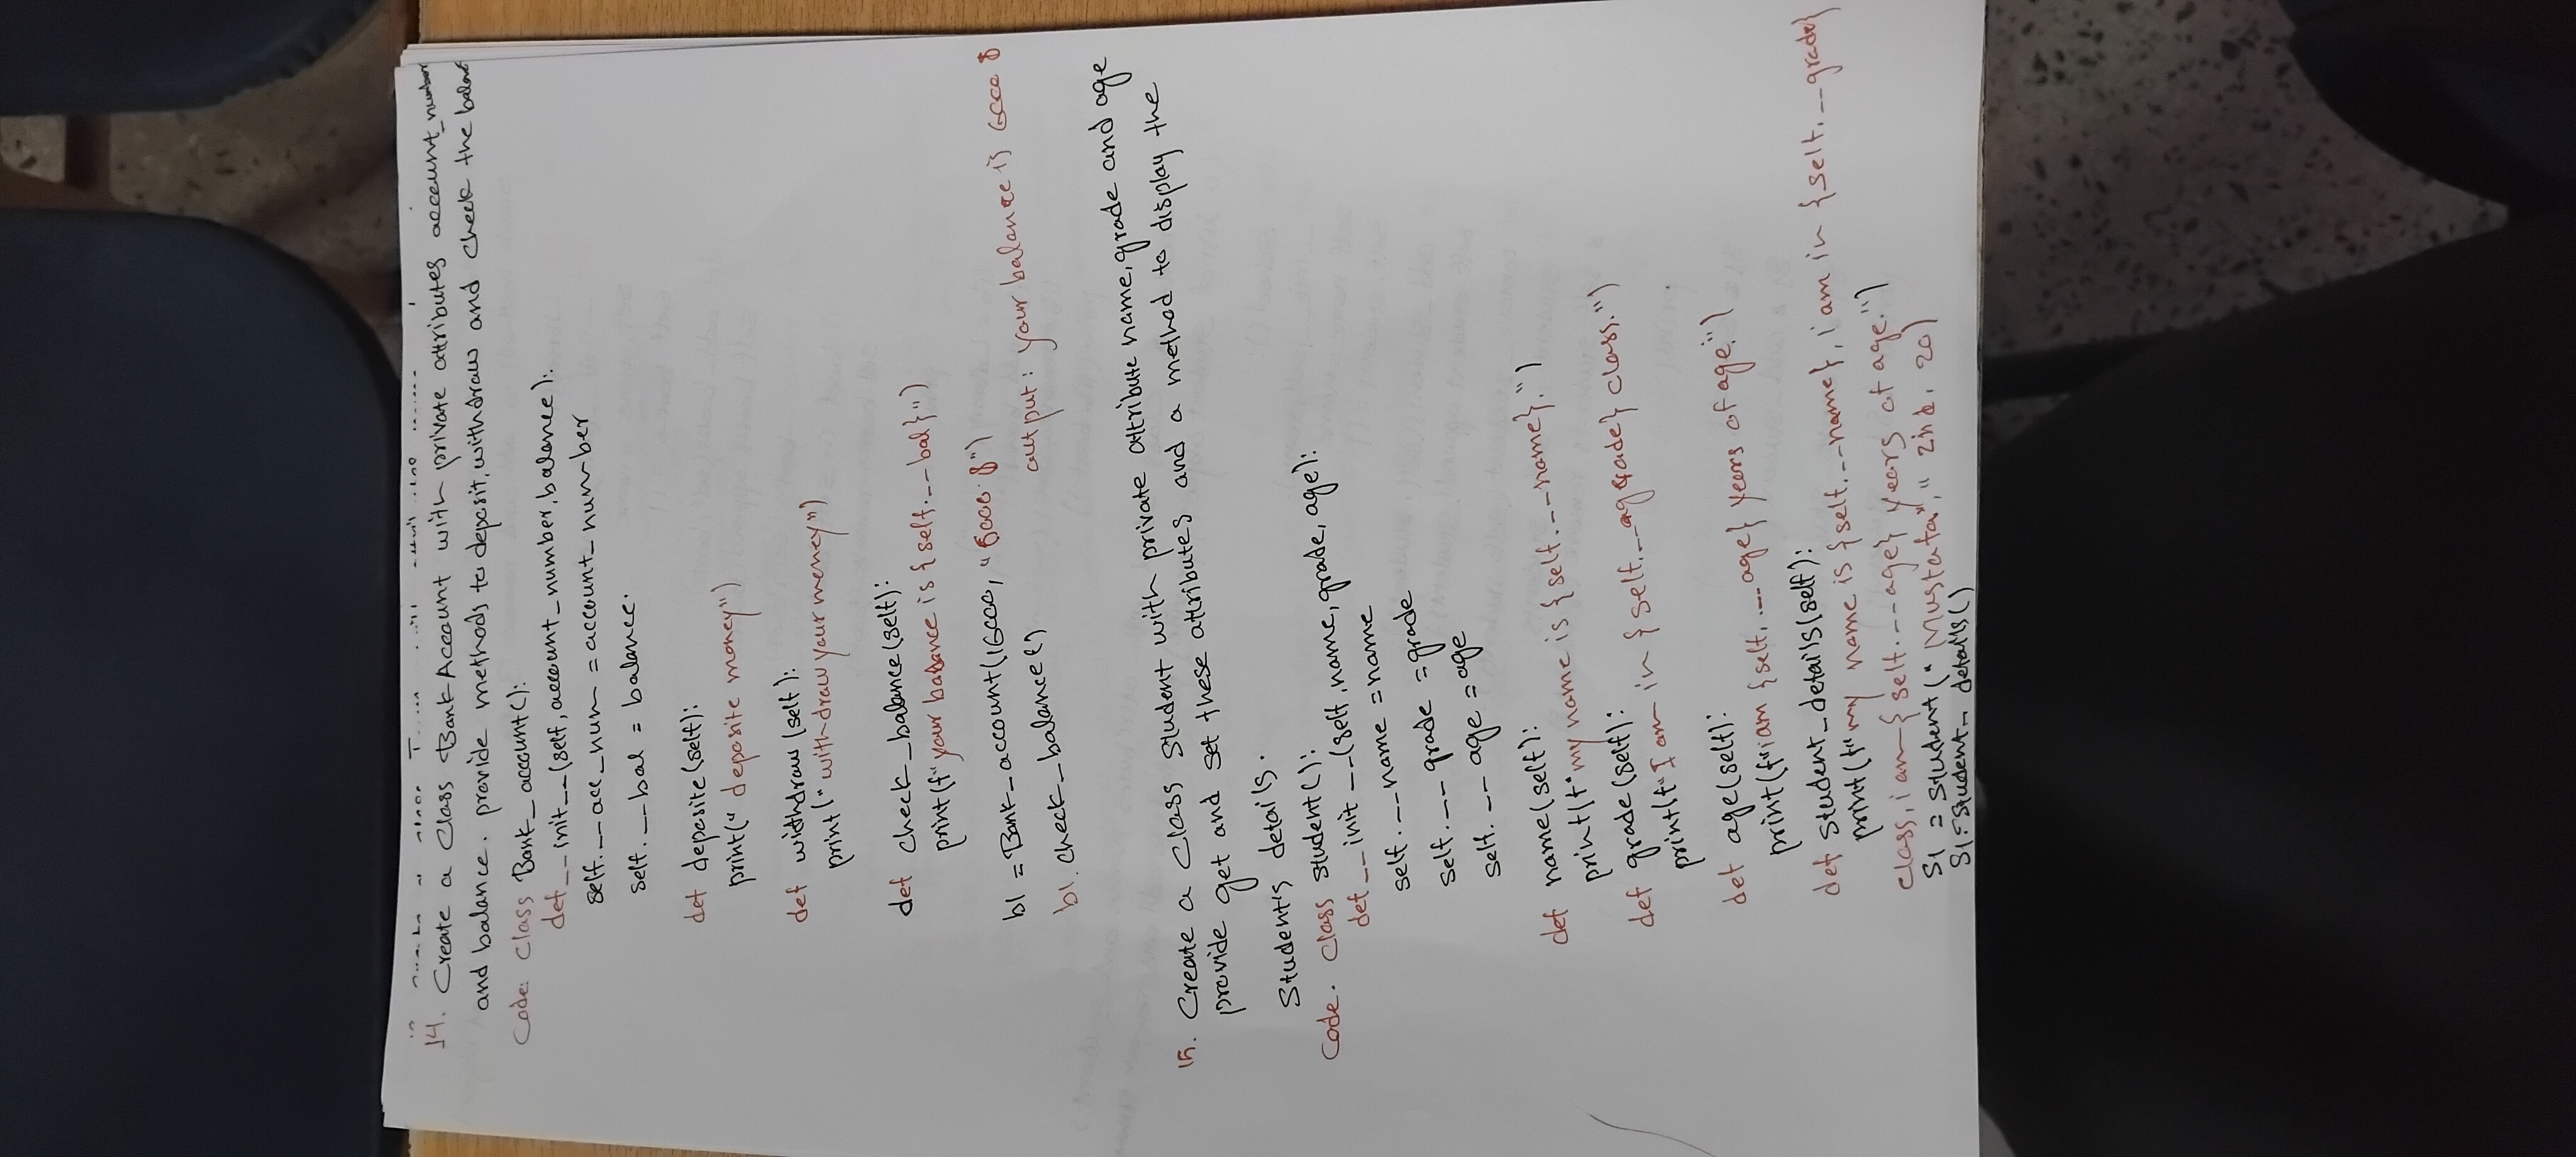 14. Create a Class BankAccount with private attributes account_number
and balance. provide methods to deposit, withdraw and check the balance
Code: Class Bank_account():
def __init__(self, account_number, balance):
self.__acc_num = account_number
self.__bal = balance.
def deposite(self):
print("deposite money")
def withdraw(self):
print("withdraw your money")
def check_balance(self):
print(f"your balance is {self.__bal}")
b1 = Bank_account(16000, "6000 $")
b1.check_balance()
output: your balance is 6000 $
15. Create a Class Student with private attribute name, grade and age
provide get and set these attributes and a method to display the
Student's details.
Code. Class Student():
def __init__(self, name, grade, age):
self.__name = name
self.__grade = grade
self.__age = age
def name(self):
print(f"my name is {self.__name}.")
def grade(self):
print(f"I am in {self.__grade} class.")
def age(self):
print(f"i am {self.__age} years of age.")
def student_details(self):
print(f"my name is {self.__name}, i am in {self.__grade}
class, i am {self.__age} years of age.")
S1 = Student("Mustafa", "2nd, 20)
S1.student_details()